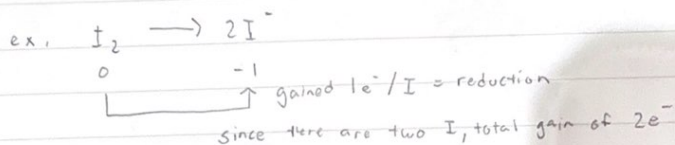 ex. I₂ → 2I⁻
0 -1
gained 1e⁻/I = reduction
since there are two I, total gain of 2e⁻